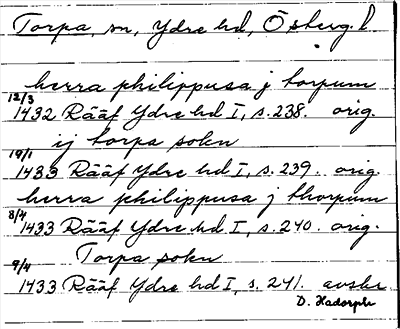 Torpa, sn, Ydre hd, Österg. l
herra philippusa j torpum
12/3
1432 Rääf Ydre hd I, s. 238. orig.
ij torpa sokn
19/1
1433 Rääf Ydre hd I, s. 239. orig.
herra philippusa j thorpum
8/4
1433 Rääf Ydre hd I, s. 240. orig.
Torpa sokn
9/4
1433 Rääf Ydre hd I, s. 241. avskr
D. Hadorph